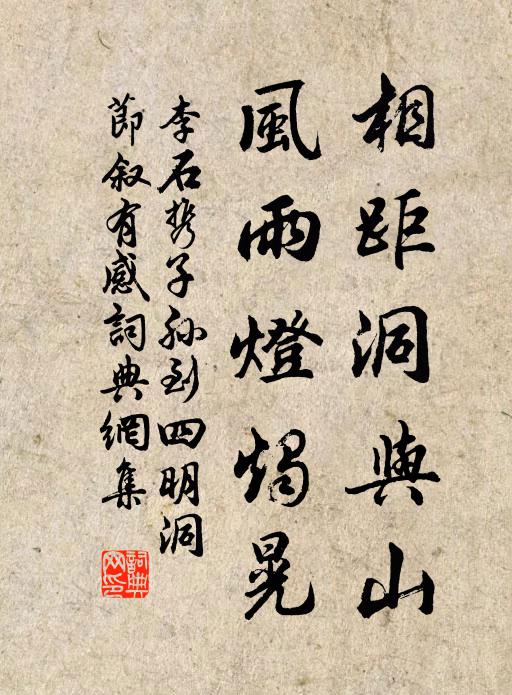 相距洞與山
風雨燈燭晃
李石携子孫到四明洞
節叙有感詞典網集
詞典網印